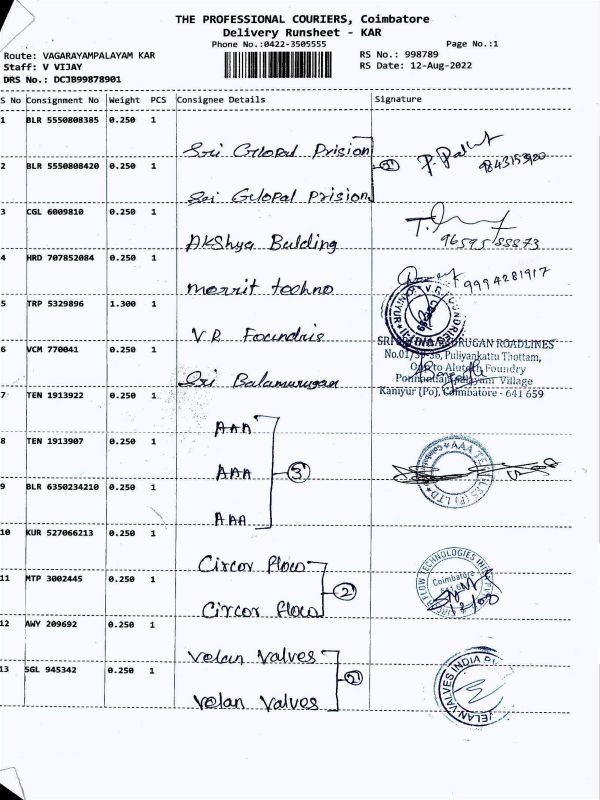 THE PROFESSIONAL COURIERS, Coimbatore
Delivery Runsheet - KAR
Phone No.:0422-3505555
Page No.:1
Route: VAGARAYAMPALAYAM KAR
RS No.: 998789
Staff: V VIJAY
RS Date: 12-Aug-2022
DRS No.: DCJB99878901
S No Consignment No Weight PCS Consignee Details Signature
1 BLR 5550808385 0.250 1
Sri Glopal Prision
2 BLR 5550808420 0.250 1
Sri Glopal Prision
2
9843153920
3 CGL 6009810 0.250 1
Akshya Bulding
4 HRD 707852084 0.250 1
Merrit techno
9994281917
5 TRP 5329896 1.300 1
V.R. Foundris
V.R. FOUNDRIES
6 VCM 770041 0.250 1
Sri Balamurugan
ROADLINES
Puliyankattu Thottam,
Foundry
Village
Kaniyur (Po), Coimbatore - 641 659
7 TEN 1913922 0.250 1
AAA
8 TEN 1913907 0.250 1
AAA
3
9 BLR 6350234210 0.250 1
AAA
10 KUR 527066213 0.250 1
Circor Flow
11 MTP 3002445 0.250 1
Circor flow
2
FLOW TECHNOLOGIES
Coimbatore
12 AWY 209692 0.250 1
Velan Valves
13 SGL 945342 0.250 1
Velan Valves
2
VELAN VALVES INDIA